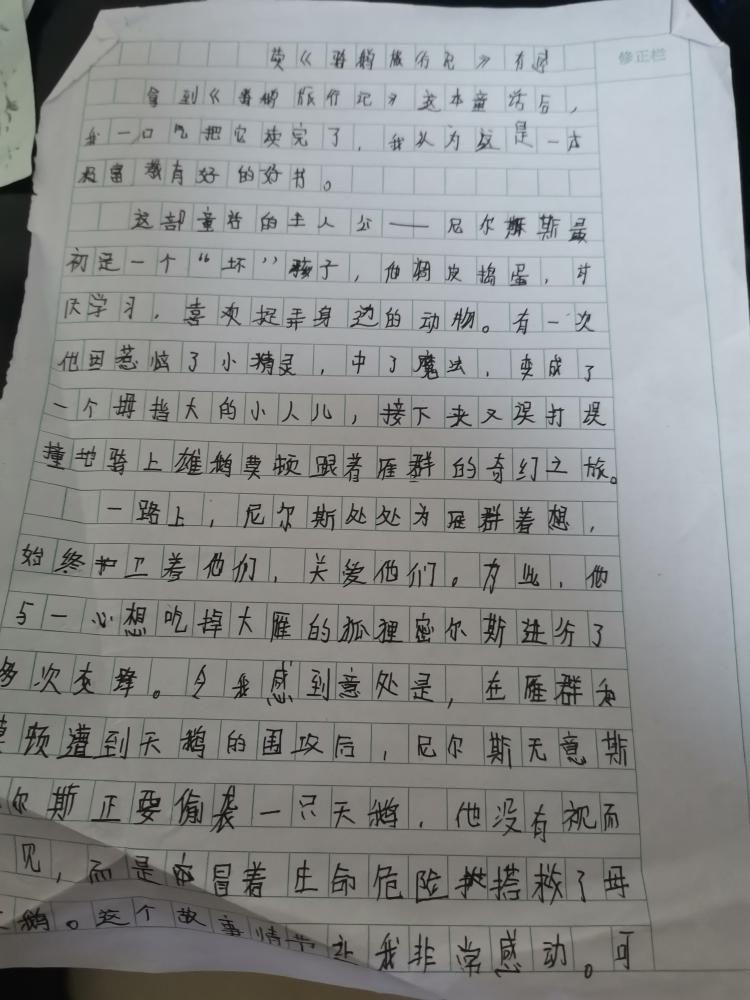 读《骑鹅旅行记》有感
修正栏
拿到《骑鹅旅行记》这本童话后，
我一口气把它读完了，我认为这是一本
极富教有好的好书。
这部童话的主人公——尼尔斯最
初是一个“坏”孩子，他调皮捣蛋，讨
厌学习，喜欢捉弄身边的动物。有一次
他因惹恼了小精灵，中了魔法，变成了
一个拇指大的小人儿，接下来又误打误
撞地骑上雄鹅莫顿跟着雁群的奇幻之旅。
一路上，尼尔斯处处为雁群着想，
始终护卫着他们，关爱他们。为此，他
与一心想吃掉大雁的狐狸密尔斯进行了
多次交锋。令我感到意处是，在雁群和
莫顿遭到天鹅的围攻后，尼尔斯无意斯
尔斯正要偷袭一只天鹅，他没有视而
见，而是冒着生命危险搭救了母
鹅。这个故事情节让我非常感动。可